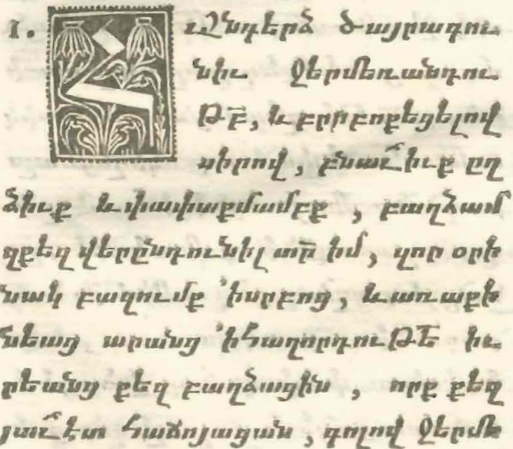 1. ՀԱնդերձ ծայրագու
նիւ ջերմեռանդու
թբ̅, և բորբոքեցելով
սիրով, բնաւ՜իւք ըղ
ձիւք և փափաքմամբք, բաղձամ
զքեզ վերընդունիլ տր̅ իմ, զոր օրի
նակ բազումք ՚ի սրբոց, և առաքի
նեաց արանց ՚ի հաղորդութե̅ իւ
րեանց քեզ բաղձացին, որք քեզ
յաւ՜էտ հաճոյացան, գոլով ջերմե